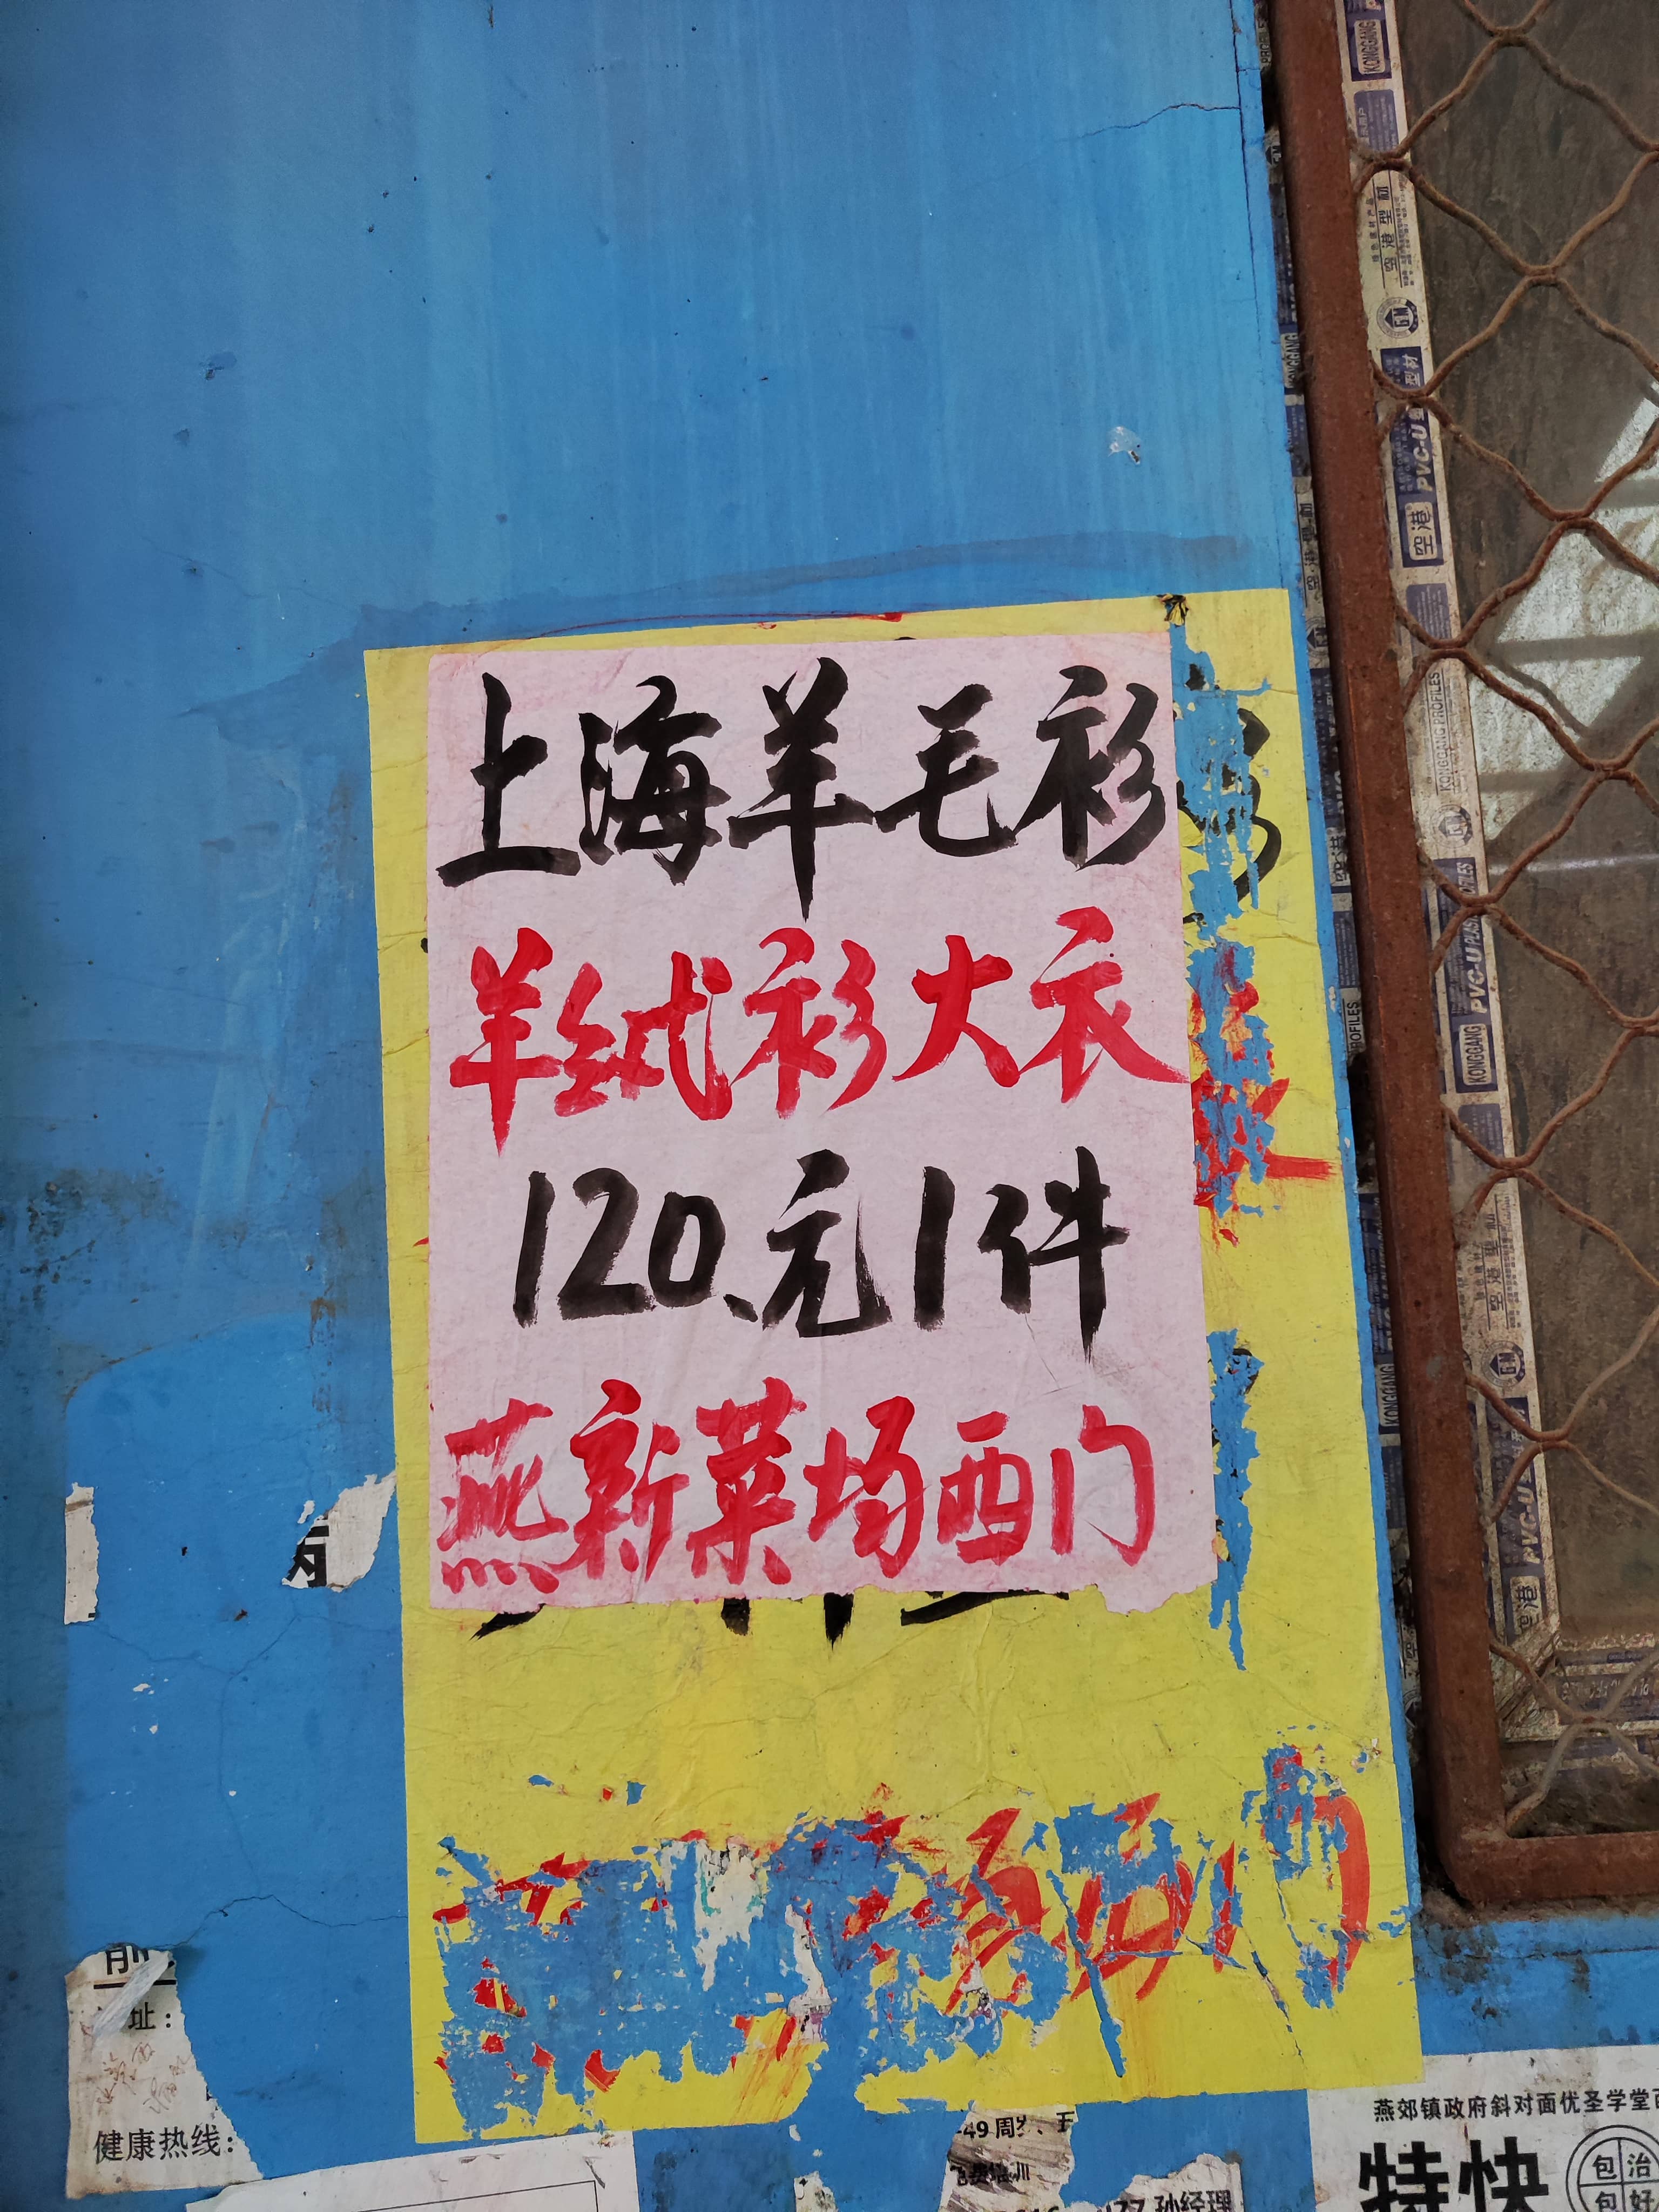 上海羊毛衫
羊绒衫大衣
120元1件
燕新菜场西门
址：
健康热线：
燕郊镇政府斜对面优圣学堂
特快
包治
包好
孙经理
KONGGANG
空港型材
PVC-U
空港
KONGGANG PROFILES
KONGGANG
PVC-U
空港